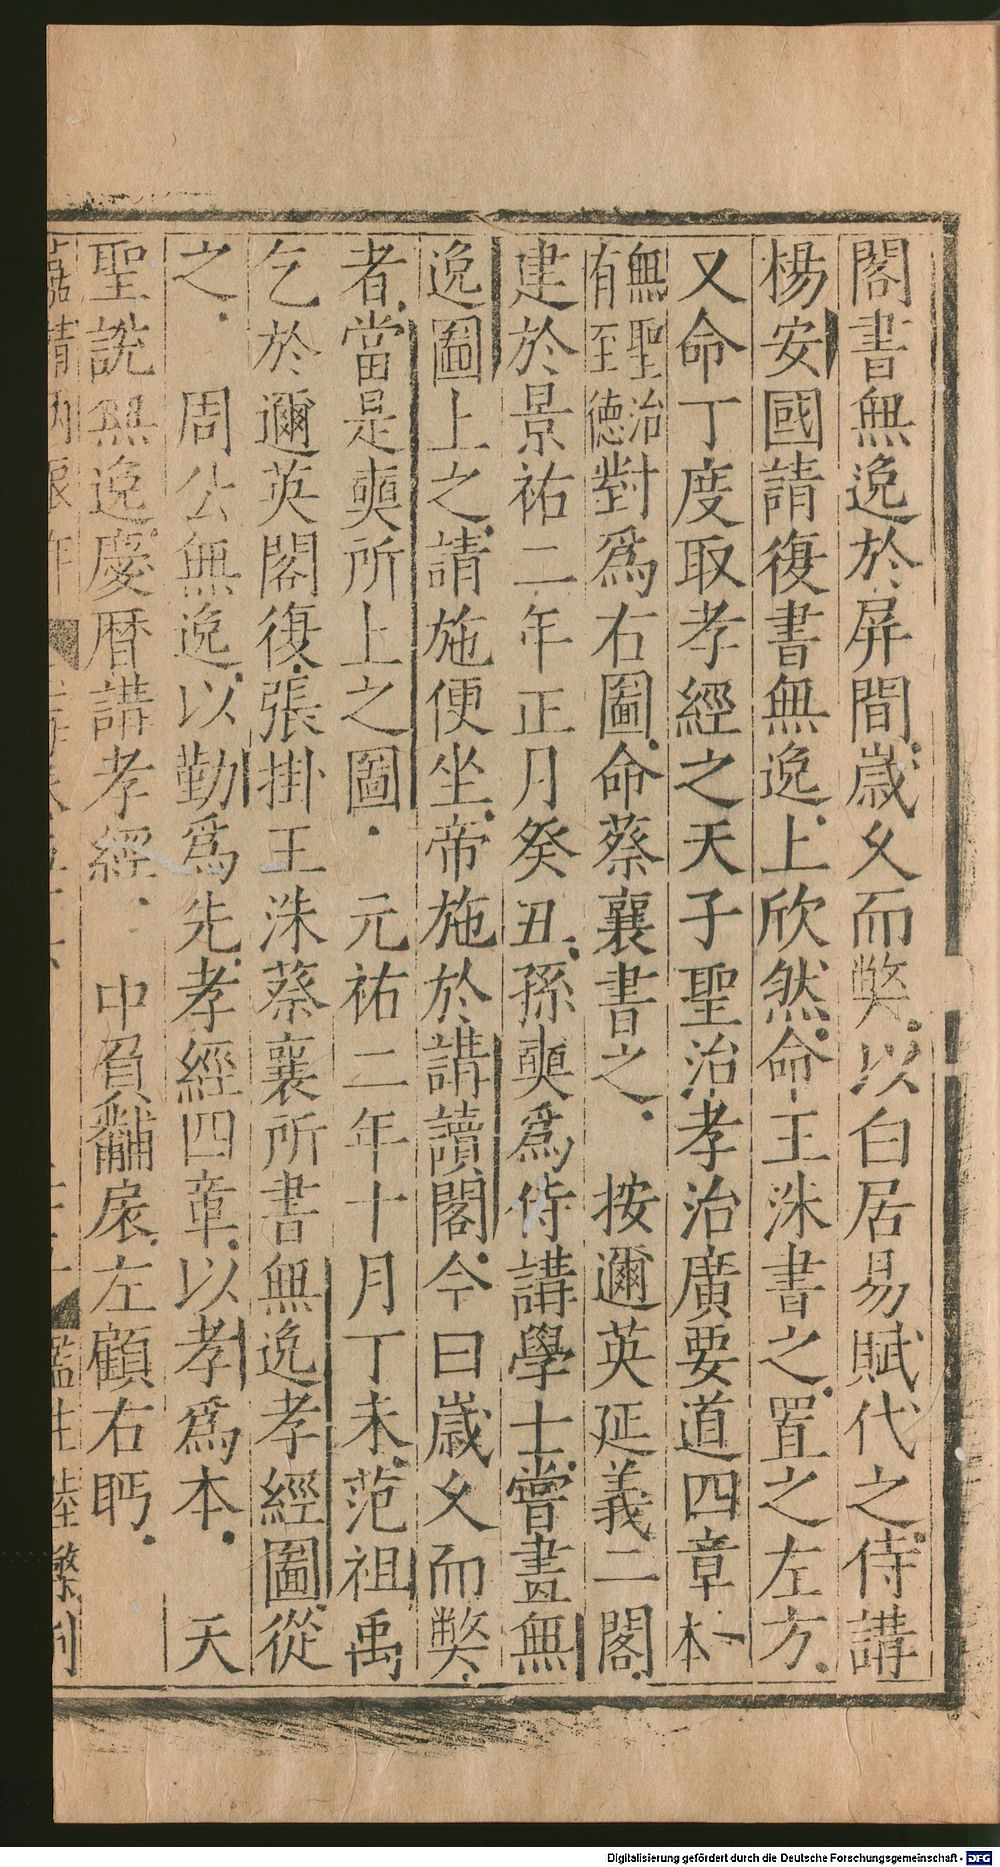 閣書無逸於屏間歲久而弊以白居易賦代之侍講
楊安國請復書無逸上欣然命王洙書之置之左方
又命丁度取孝經之天子聖治孝治廣要道四章一本
無聖治
有至德
對爲右圖命蔡襄書之　按邇英延義二閣
建於景祐二年正月癸丑孫奭爲侍講學士嘗畫無
逸圖上之請施便坐帝施於講讀閣今曰歲久而弊
者當是奭所上之圖　元祐二年十月丁未范祖禹
乞於邇英閣復張掛王洙蔡襄所書無逸孝經圖從
之　周公無逸以勤爲先孝經四章以孝爲本　天
聖說無逸慶曆講孝經　中負黼扆左顧右眄
Digitalisierung gefördert durch die Deutsche Forschungsgemeinschaft - DFG